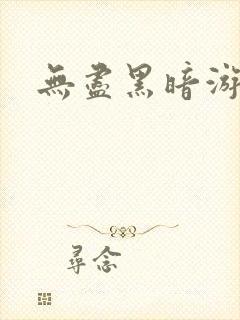 無盡黑暗游
尋念